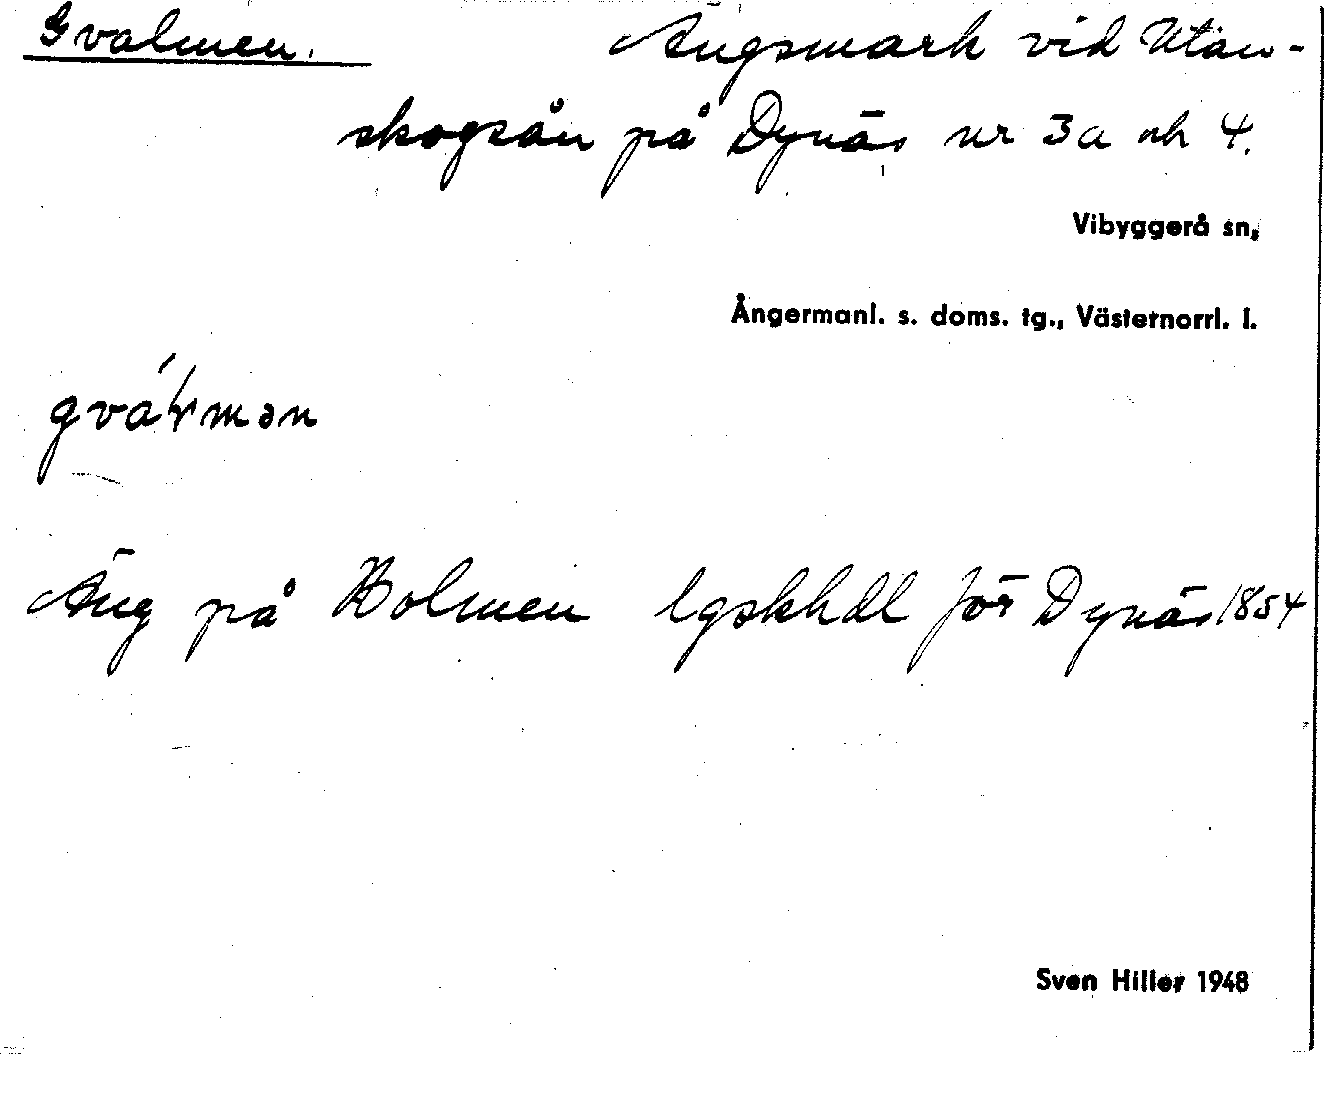 Gvalmen. Ängsmark vid Utan-
skogsån på Dynäs nr 3a och 4.
Vibyggerå sn,
Ångermanl. s. doms. tg., Västernorrl. l.
Äng på Holmen lgskhdl för Dynäs 1854
Sven Hiller 1948